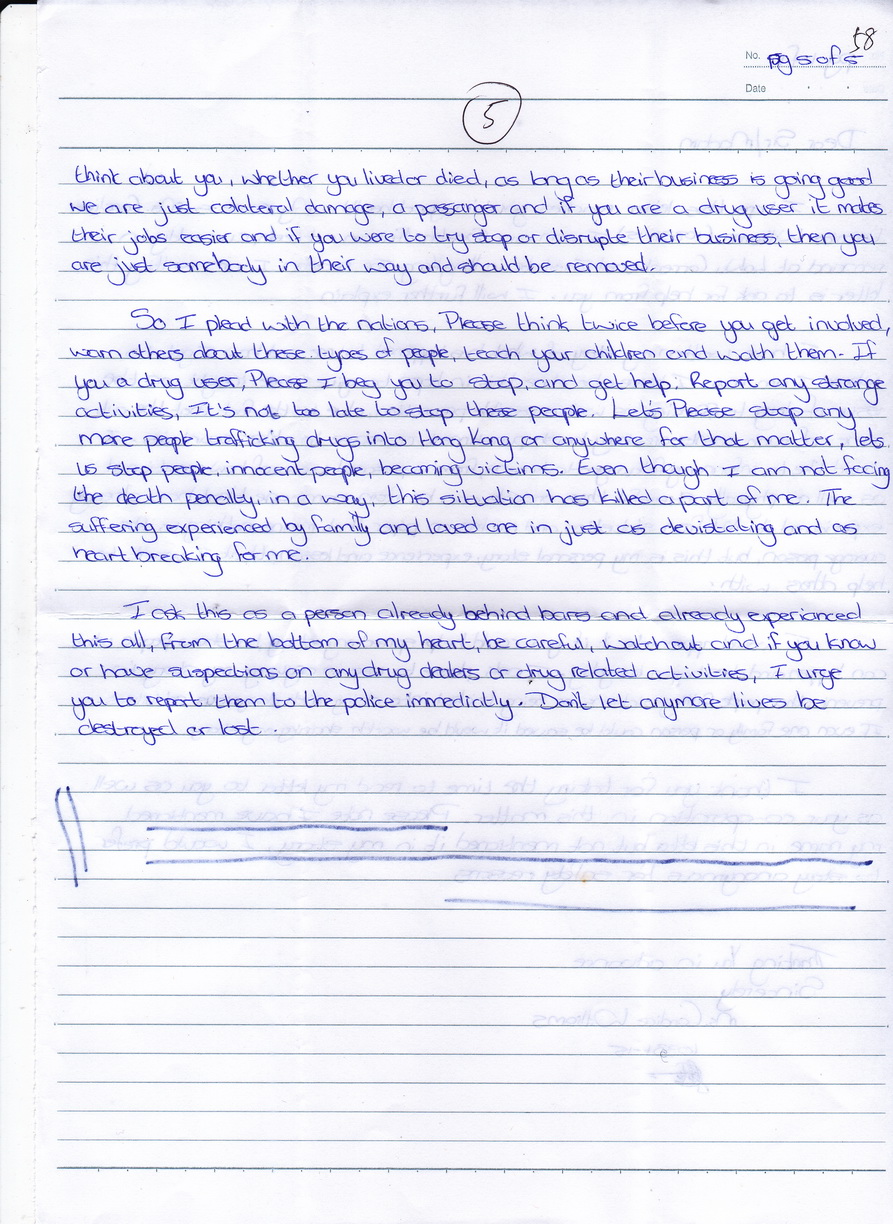 58
No. pg 5 of 5
Date
5
think about you, whether you lived or died, as long as their business is going good
we are just colateral damage, a passanger and if you are a drug user it makes
their jobs easier and if you were to try stop or disrupte their business, then you
are just somebody in their way and should be removed.
So I plead with the nations, Please think twice before you get involved,
warn others about these types of people, teach your children and wath them. If
you a drug user, Please I beg you to stop, and get help. Report any strange
activities, It's not too late to stop these people. Let's Please stop any
more people trafficking drugs into Hong Kong or anywhere for that matter, lets
us stop people, innocent people, becoming victims. Even though I am not facing
the death penalty, in a way, this situation has killed a part of me. The
suffering experienced by family and loved one in just as devistating and as
heart breaking for me.
I ask this as a person already behind bars and already experienced
this all, from the bottom of my heart, be careful, watch out and if you know
or have suspections on any drug dealers or drug related activities, I urge
you to report them to the police immedictly. Don't let anymore lives be
destroyed or lost.